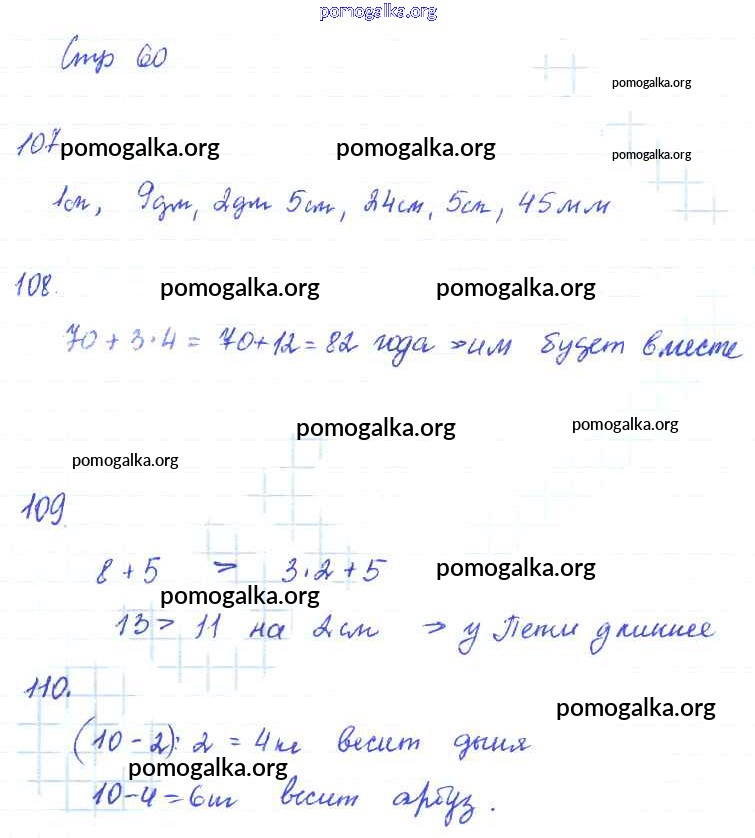 pomogalka.org
Стр 60
pomogalka.org
107 pomogalka.org pomogalka.org
pomogalka.org
1см, 9дм, 2дм 5см, 24см, 5см, 45мм
108. pomogalka.org pomogalka.org
70 + 3·4 = 70+12 = 82 года → им будет вместе
pomogalka.org pomogalka.org
pomogalka.org
109
8 + 5 > 3·2 + 5 pomogalka.org
pomogalka.org
13 > 11 на 2см → у Пети длиннее
110.
pomogalka.org
(10 - 2) : 2 = 4кг весит дыня
pomogalka.org
10-4 = 6кг весит арбуз.